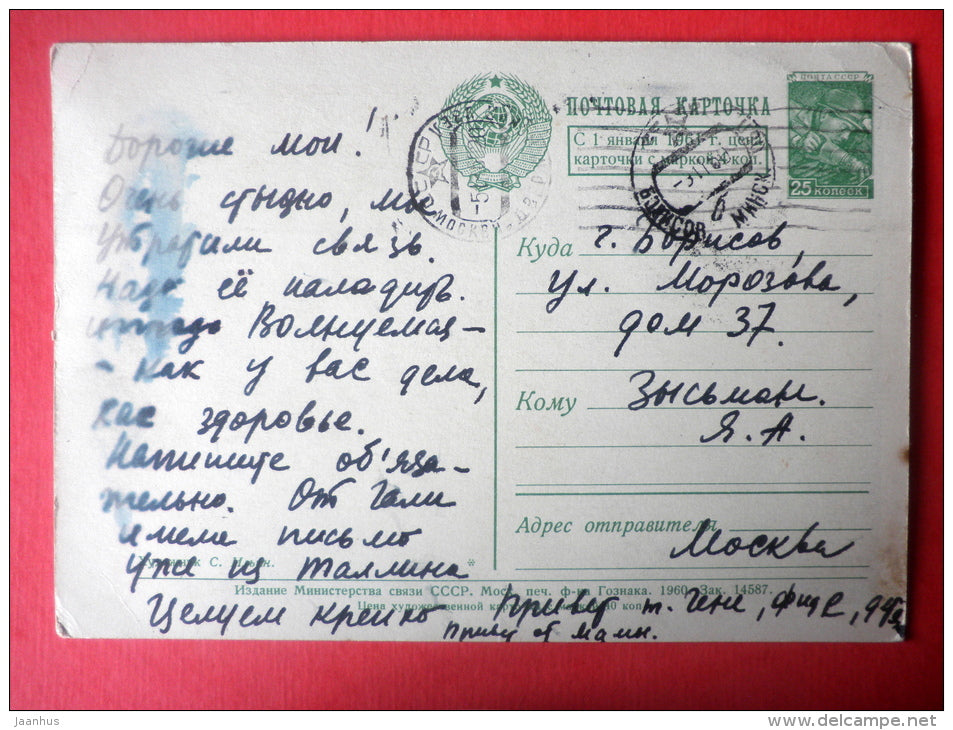 Дорогие мои!
Очень стыдно, мы
утратили связь.
Надо её наладить.
Волнуемся -
- как у вас дела,
как здоровье.
Напишите об'яза-
тельно. От Гали
имели письмо
уже из Таллина
Целуем крепко Привет т. Гене,
Привет от Мамы.
ПОЧТА СССР
25 КОПЕЕК
ПОЧТОВАЯ КАРТОЧКА
С 1 января 1961 г. цена
карточки с маркой коп.
БОРИСОВ МИНСК
МОСКВА
Куда г. Борисов,
ул. Морозова,
дом 37.
Кому Зысьман.
Я. А.
Адрес отправителя
Москва
Художник С.
Издание Министерства связи СССР. Моск. печ. ф-ка Гознака. 1960. Зак. 14587.
Цена художественной карточки с маркой 40 коп.
jaanhus
www.delcampe.net